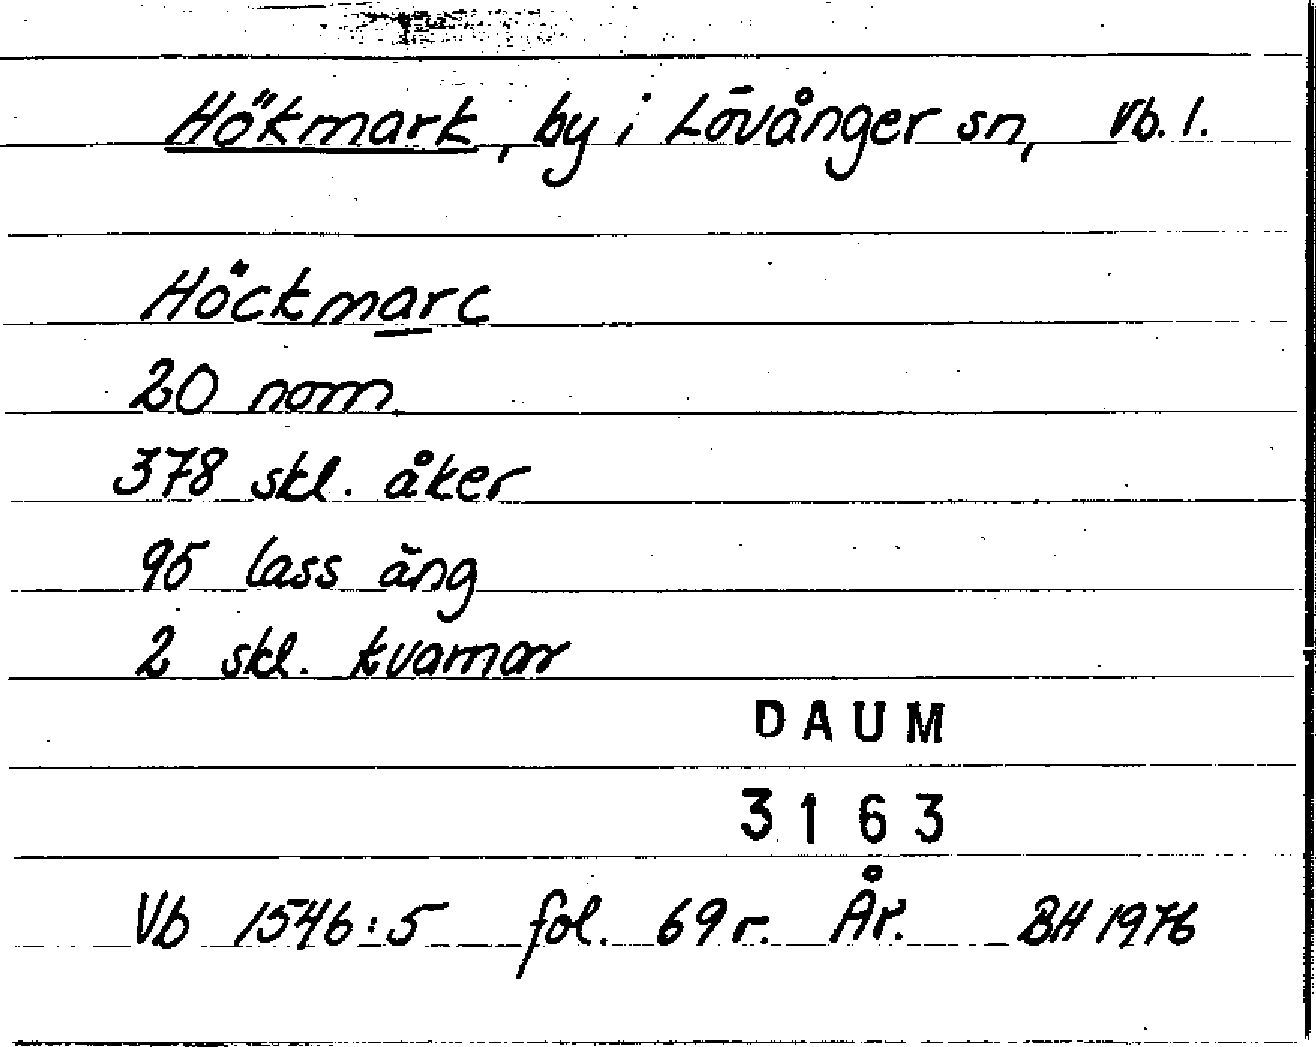 Hökmark, by i Lövånger sn, Vb. l.
Höckmarc
20 nom
378 skl. åker
95 lass äng
2 skl. kvarnar
DAUM
3163
Vb 1546:5 fol. 69 r. År. BH 1976